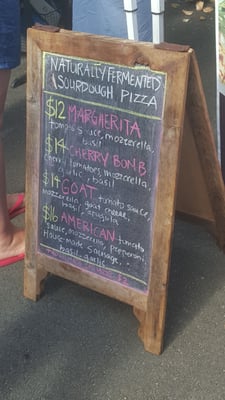 NATURALLY FERMENTED
SOURDOUGH PIZZA
$12 MARGHERITA
tomato sauce, mozzerella,
basil
$14 CHERRY BOMB
cherry tomatoes, mozzarella,
garlic, basil
$14 GOAT tomato sauce,
mozzerella, goat cheese,
basil, arugula
$16 AMERICAN tomato
sauce, mozzerella, pepperoni,
House-made Sausage,
basil, garlic